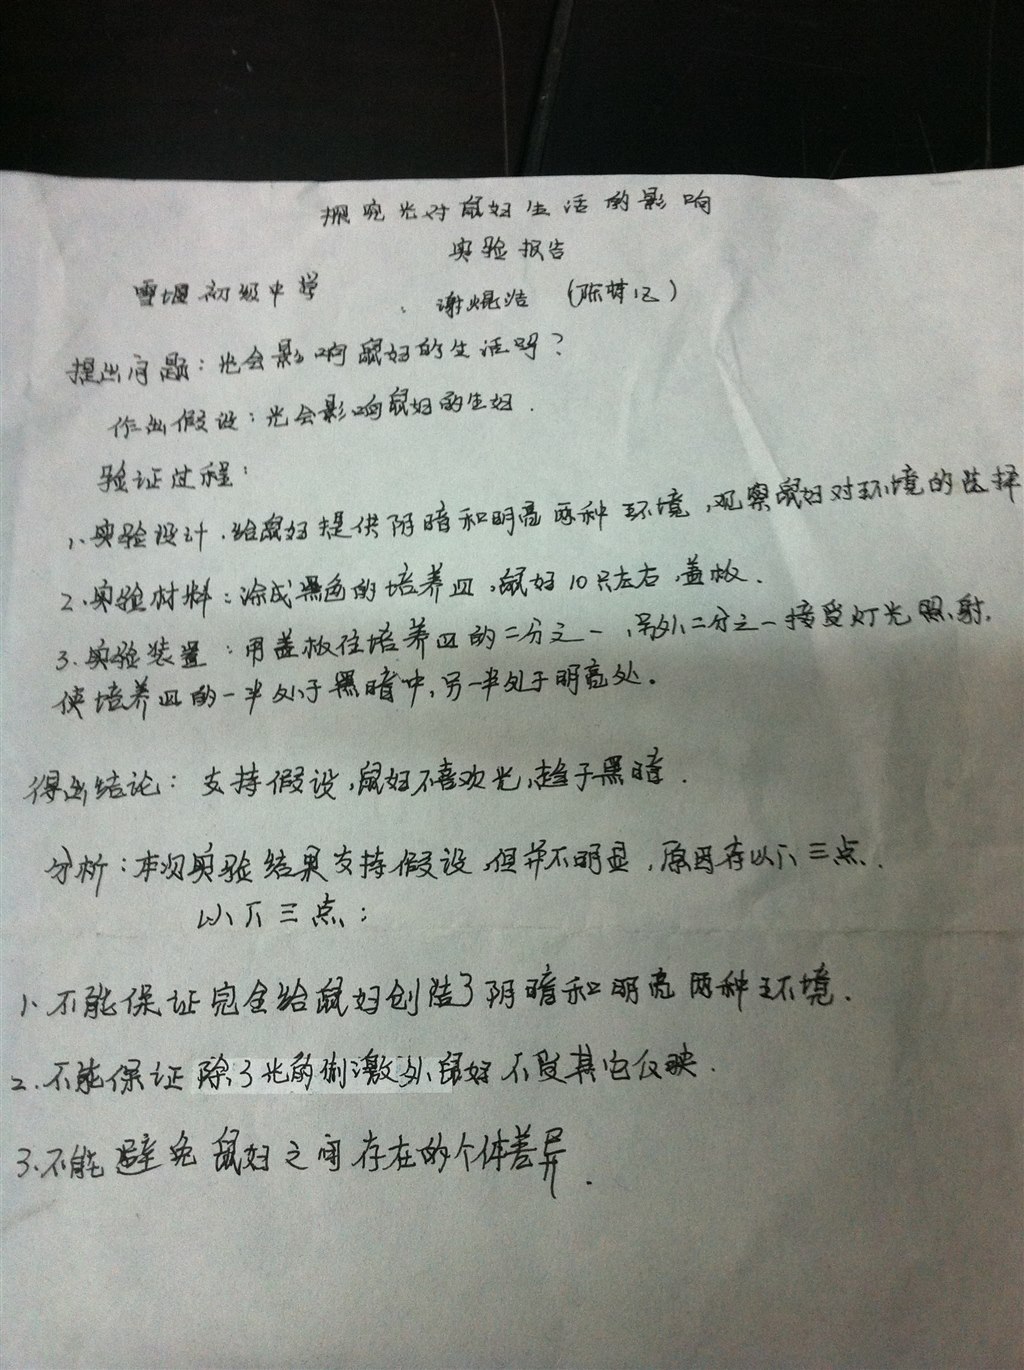 探究光对鼠妇生活的影响
实验报告
雪堰初级中学 谢焜浩 (陈梦
提出问题：光会影响鼠妇的生活吗？
作出假设：光会影响鼠妇的生妇.
验证过程：
1、实验设计.给鼠妇提供阴暗和明亮两种环境,观察鼠妇对环境的选择
2、实验材料：涂成黑色的培养皿,鼠妇10只左右,盖板.
3、实验装置：用盖板住培养皿的二分之一,另外二分之一接受灯光照射.
使培养皿的一半处于黑暗中,另一半处于明亮处。
得出结论：支持假设,鼠妇不喜欢光,趋于黑暗.
分析：本次实验结果支持假设,但并不明显,原因存以下三点.
以下三点：
1.不能保证完全给鼠妇创造了阴暗和明亮两种环境.
2.不能保证除了光的刺激外,鼠妇不受其它仅映.
3.不能避免鼠妇之间存在的个体差异.